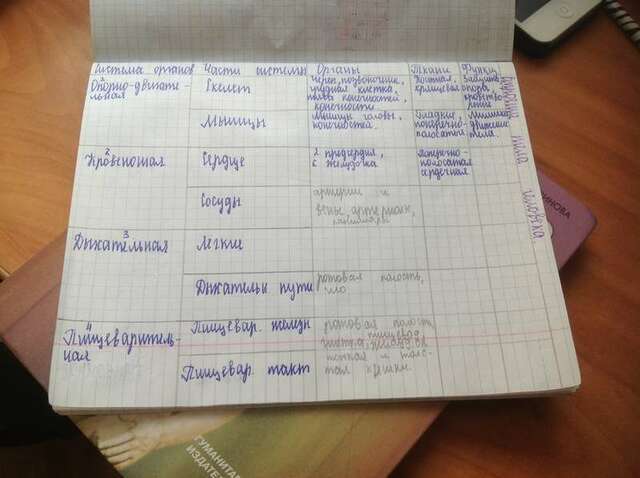 Система органов Части системы Органы Ткани Функции
Опорно-двигате-
льная
Скелет
череп, позвоночник,
грудная клетка,
пояса конечностей,
конечности
Костная,
хрящевая
опора,
кровотво
рение
Мышцы
Мышцы головы,
конечностей.
Гладкие,
поперечно-
полосатые
Мимика
движение
тела.
Кровеносная
2
Сердце
2 предсердия,
2 желудочка
Поперечно-
полосатая
сердечная
Сосуды
артерии и
вены, артериолы,
капилляры
3
Дыхательная
Легкие
Дыхательн пути
ротовая полость,
4
Пищеваритель-
ная
Пищевар. железы
ротовая полость
глотка, пищевод,
желудок
Пищевар. такт
тонкая и толс-
тая кишки.
тела человека
ИНОВА
ГУМАНИТАР
ИЗДАТЕЛ